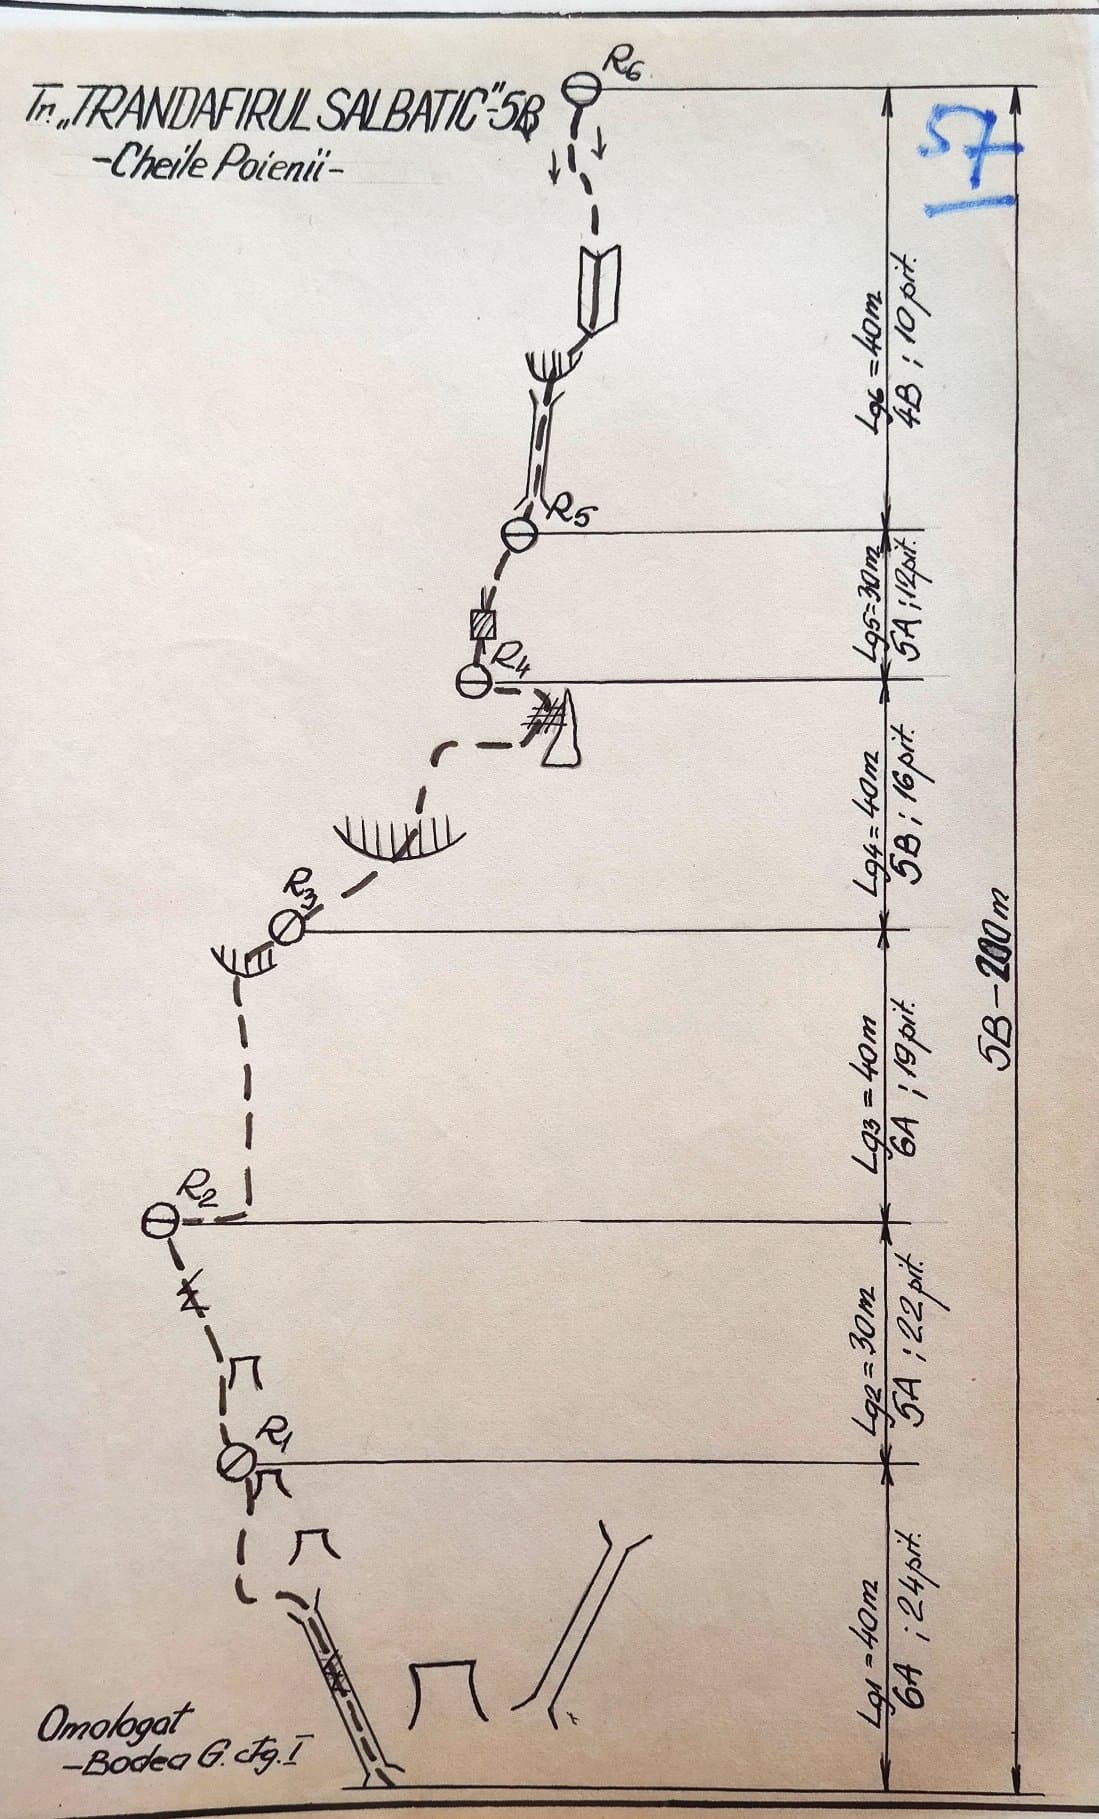 R6
Tr. „TRANDAFIRUL SALBATIC"-5B
-Cheile Poienii-
57
Lg6 = 40m
4B ; 10 pit.
R5
Lg5=30m
5A ; 12pit.
R4
Lg4 = 40m
5B ; 16 pit.
R3
5B-200m
Lg3 = 40m
6A ; 19 pit.
R2
Lg2 = 30m
5A ; 22 pit.
R1
Lg1 = 40m
6A ; 24 pit.
Omologat
-Bodea G. ctg. I